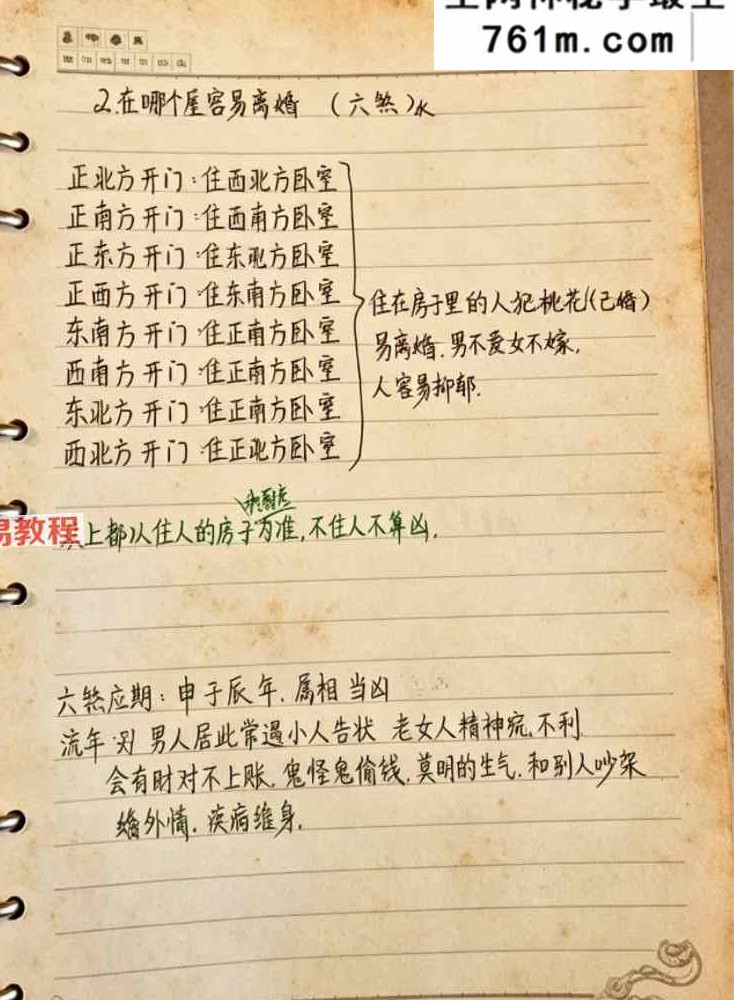 761m.com
2.在哪个屋容易离婚 (六煞)水
正北方开门:住西北方卧室
正南方开门:住西南方卧室
正东方开门:住东北方卧室
正西方开门:住东南方卧室
东南方开门:住正南方卧室
西南方开门:住正南方卧室
东北方开门:住正南方卧室
西北方开门:住正北方卧室
住在房子里的人犯桃花(已婚)
易离婚.男不爱女不嫁.
人容易抑郁.
易教程
上都以住人的房子为准,不住人不算凶.
六煞应期:申子辰年.属相当凶
流年:对 男人居此常遇小人告状 老女人精神病.不利
会有时对不上账.鬼怪鬼偷钱.莫明的生气.和别人吵架
婚外情.疾病缠身.